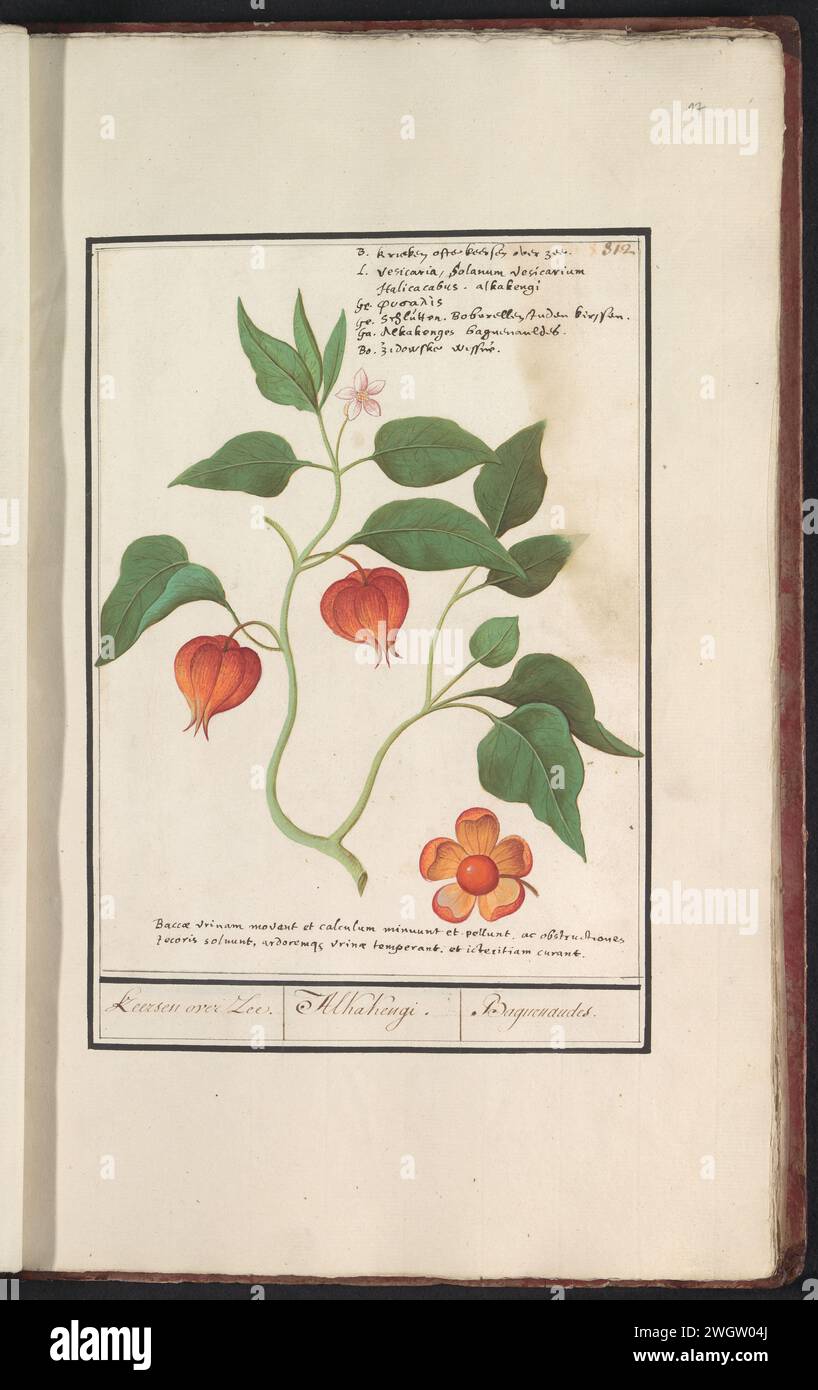 17
312
B. Krieken ofte keersen over zee.
L. Vesicaria, Solanum vesicarium
Halicacabus. alkakengi
Gr. Φυσαλις
Ge. Schlutten. Boberellen Juden kirssen.
Ga. Alkakenges baguenauldes.
Bo. Židowske wissně.
Baccæ vrinam movent et calculum minuunt et pellunt, ac obstructiones
Jecoris soluunt, ardoremqꝫ vrinæ temperant. et icteritiam curant.
Keersen over Zee. Alkakengi. Baguenaudes.
alamy
alamy
Image ID: 2WGW04J
www.alamy.com